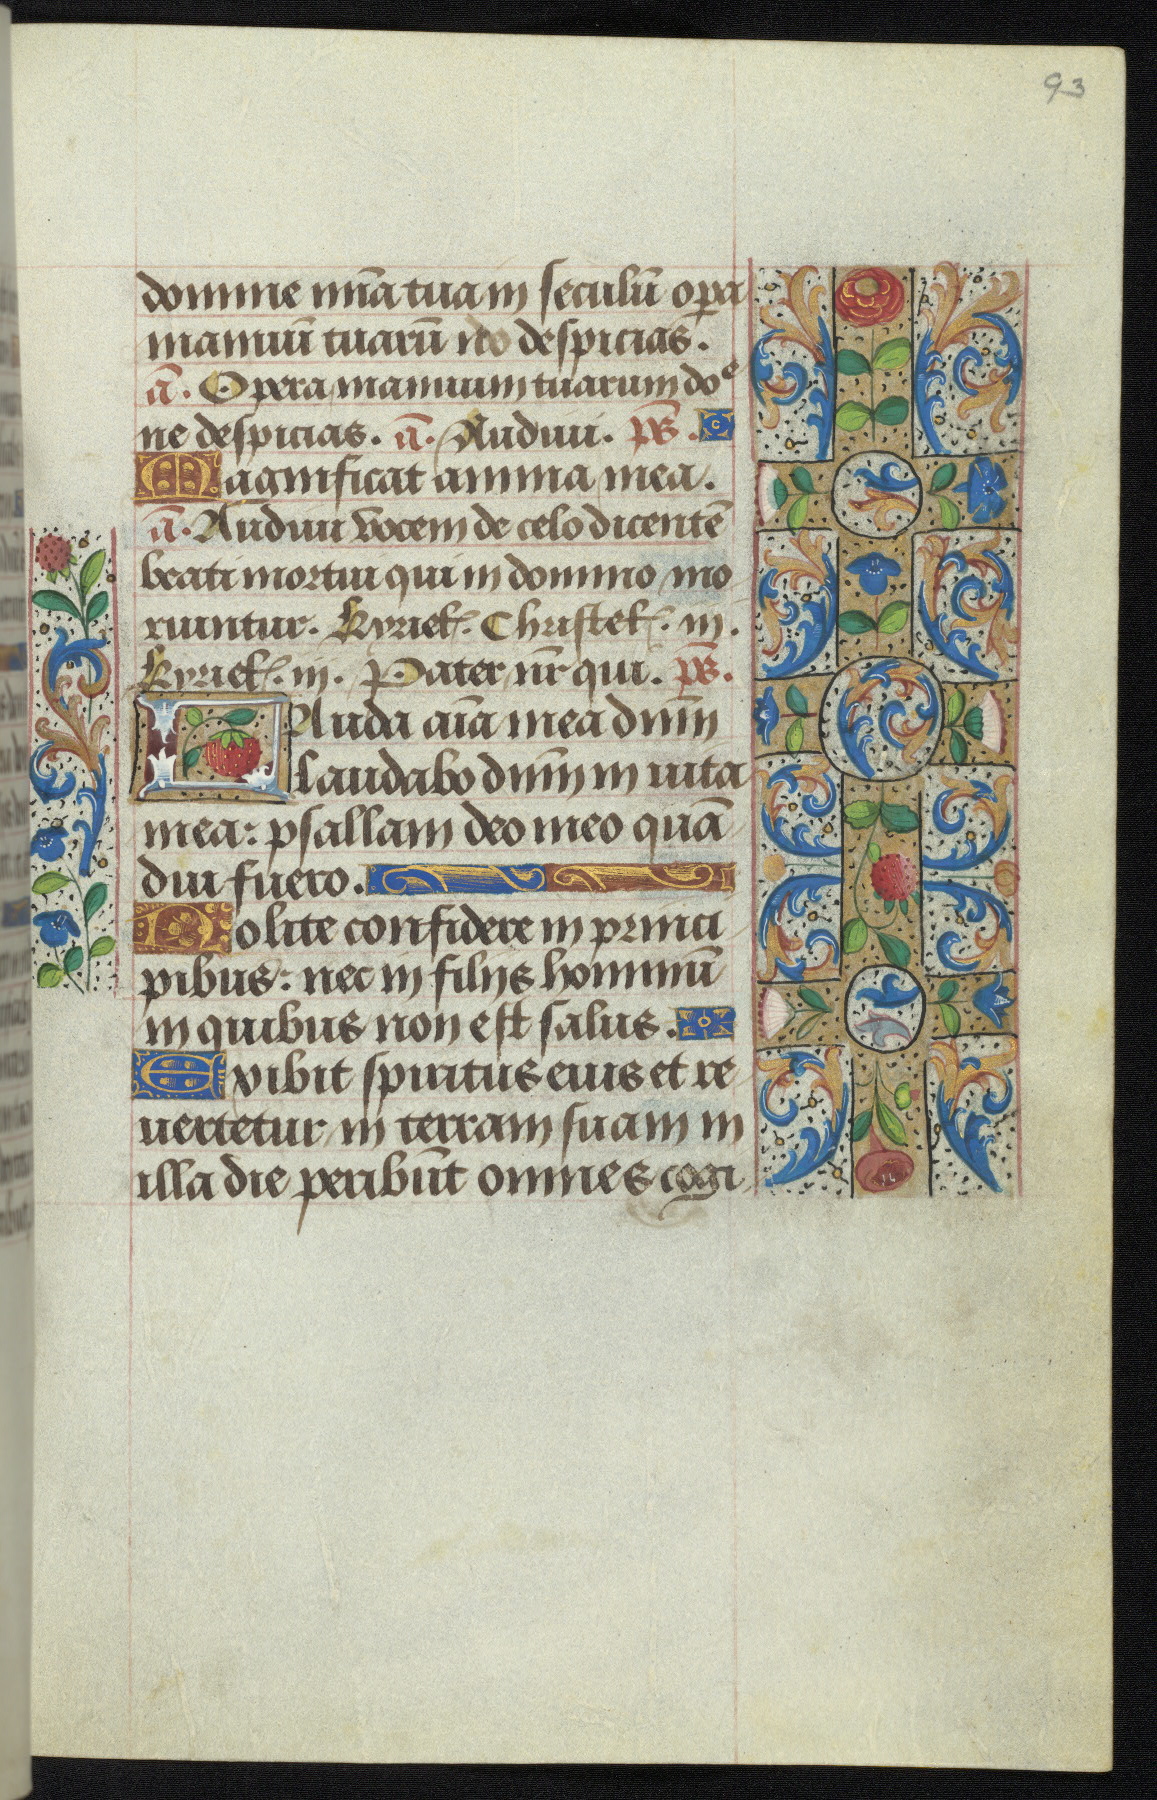 93
domine mīa tua in seculū opera
manuū tuarū ne despicias.
ā. Opera manuum tuarum do
ne despicias. ā. Audiui. p̄s.
Magnificat anima mea.
ā. Audiui vocem de celo dicentē
beati mortui qui in domino mo
riuntur. Kyriel. Christel. iij.
Kyriel. iij. Pater nr̄ qui. p̄s.
Lauda aīa mea dnm̄
laudabo dnm̄ in uita
mea: psallam deo meo quā
diu fuero.
Nolite confidere in princi
pibus: nec in filijs hominū
in quibus non est salus.
Exibit spiritus eius et re
uertetur in terram suam in
illa die peribūt omnes cogi